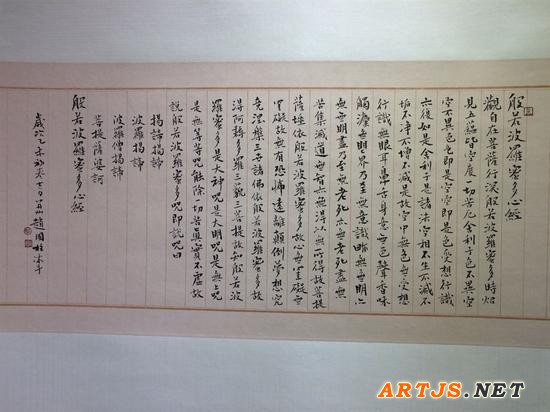 般若波羅蜜多心經
觀自在菩薩行深般若波羅蜜多時照
見五蘊皆空度一切苦厄舍利子色不異空
空不異色色即是空空即是色受想行識
亦復如是舍利子是諸法空相不生不滅不
垢不淨不增不減是故空中無色無受想
行識無眼耳鼻舌身意無色聲香味
觸法無眼界乃至無意識界無無明亦
無無明盡乃至無老死亦無老死盡無
苦集滅道無智亦無得以無所得故菩提
薩埵依般若波羅蜜多故心無罣礙無
罣礙故無有恐怖遠離顛倒夢想究
竟涅槃三世諸佛依般若波羅蜜多故
得阿耨多羅三藐三菩提故知般若波
羅蜜多是大神咒是大明咒是無上咒
是無等等咒能除一切苦真實不虛故
說般若波羅蜜多咒即說咒曰
揭諦揭諦
波羅揭諦
波羅僧揭諦
菩提薩婆訶
般若波羅蜜多心經
歲次乙未初冬 趙國柱沐手
ARTJS.NET